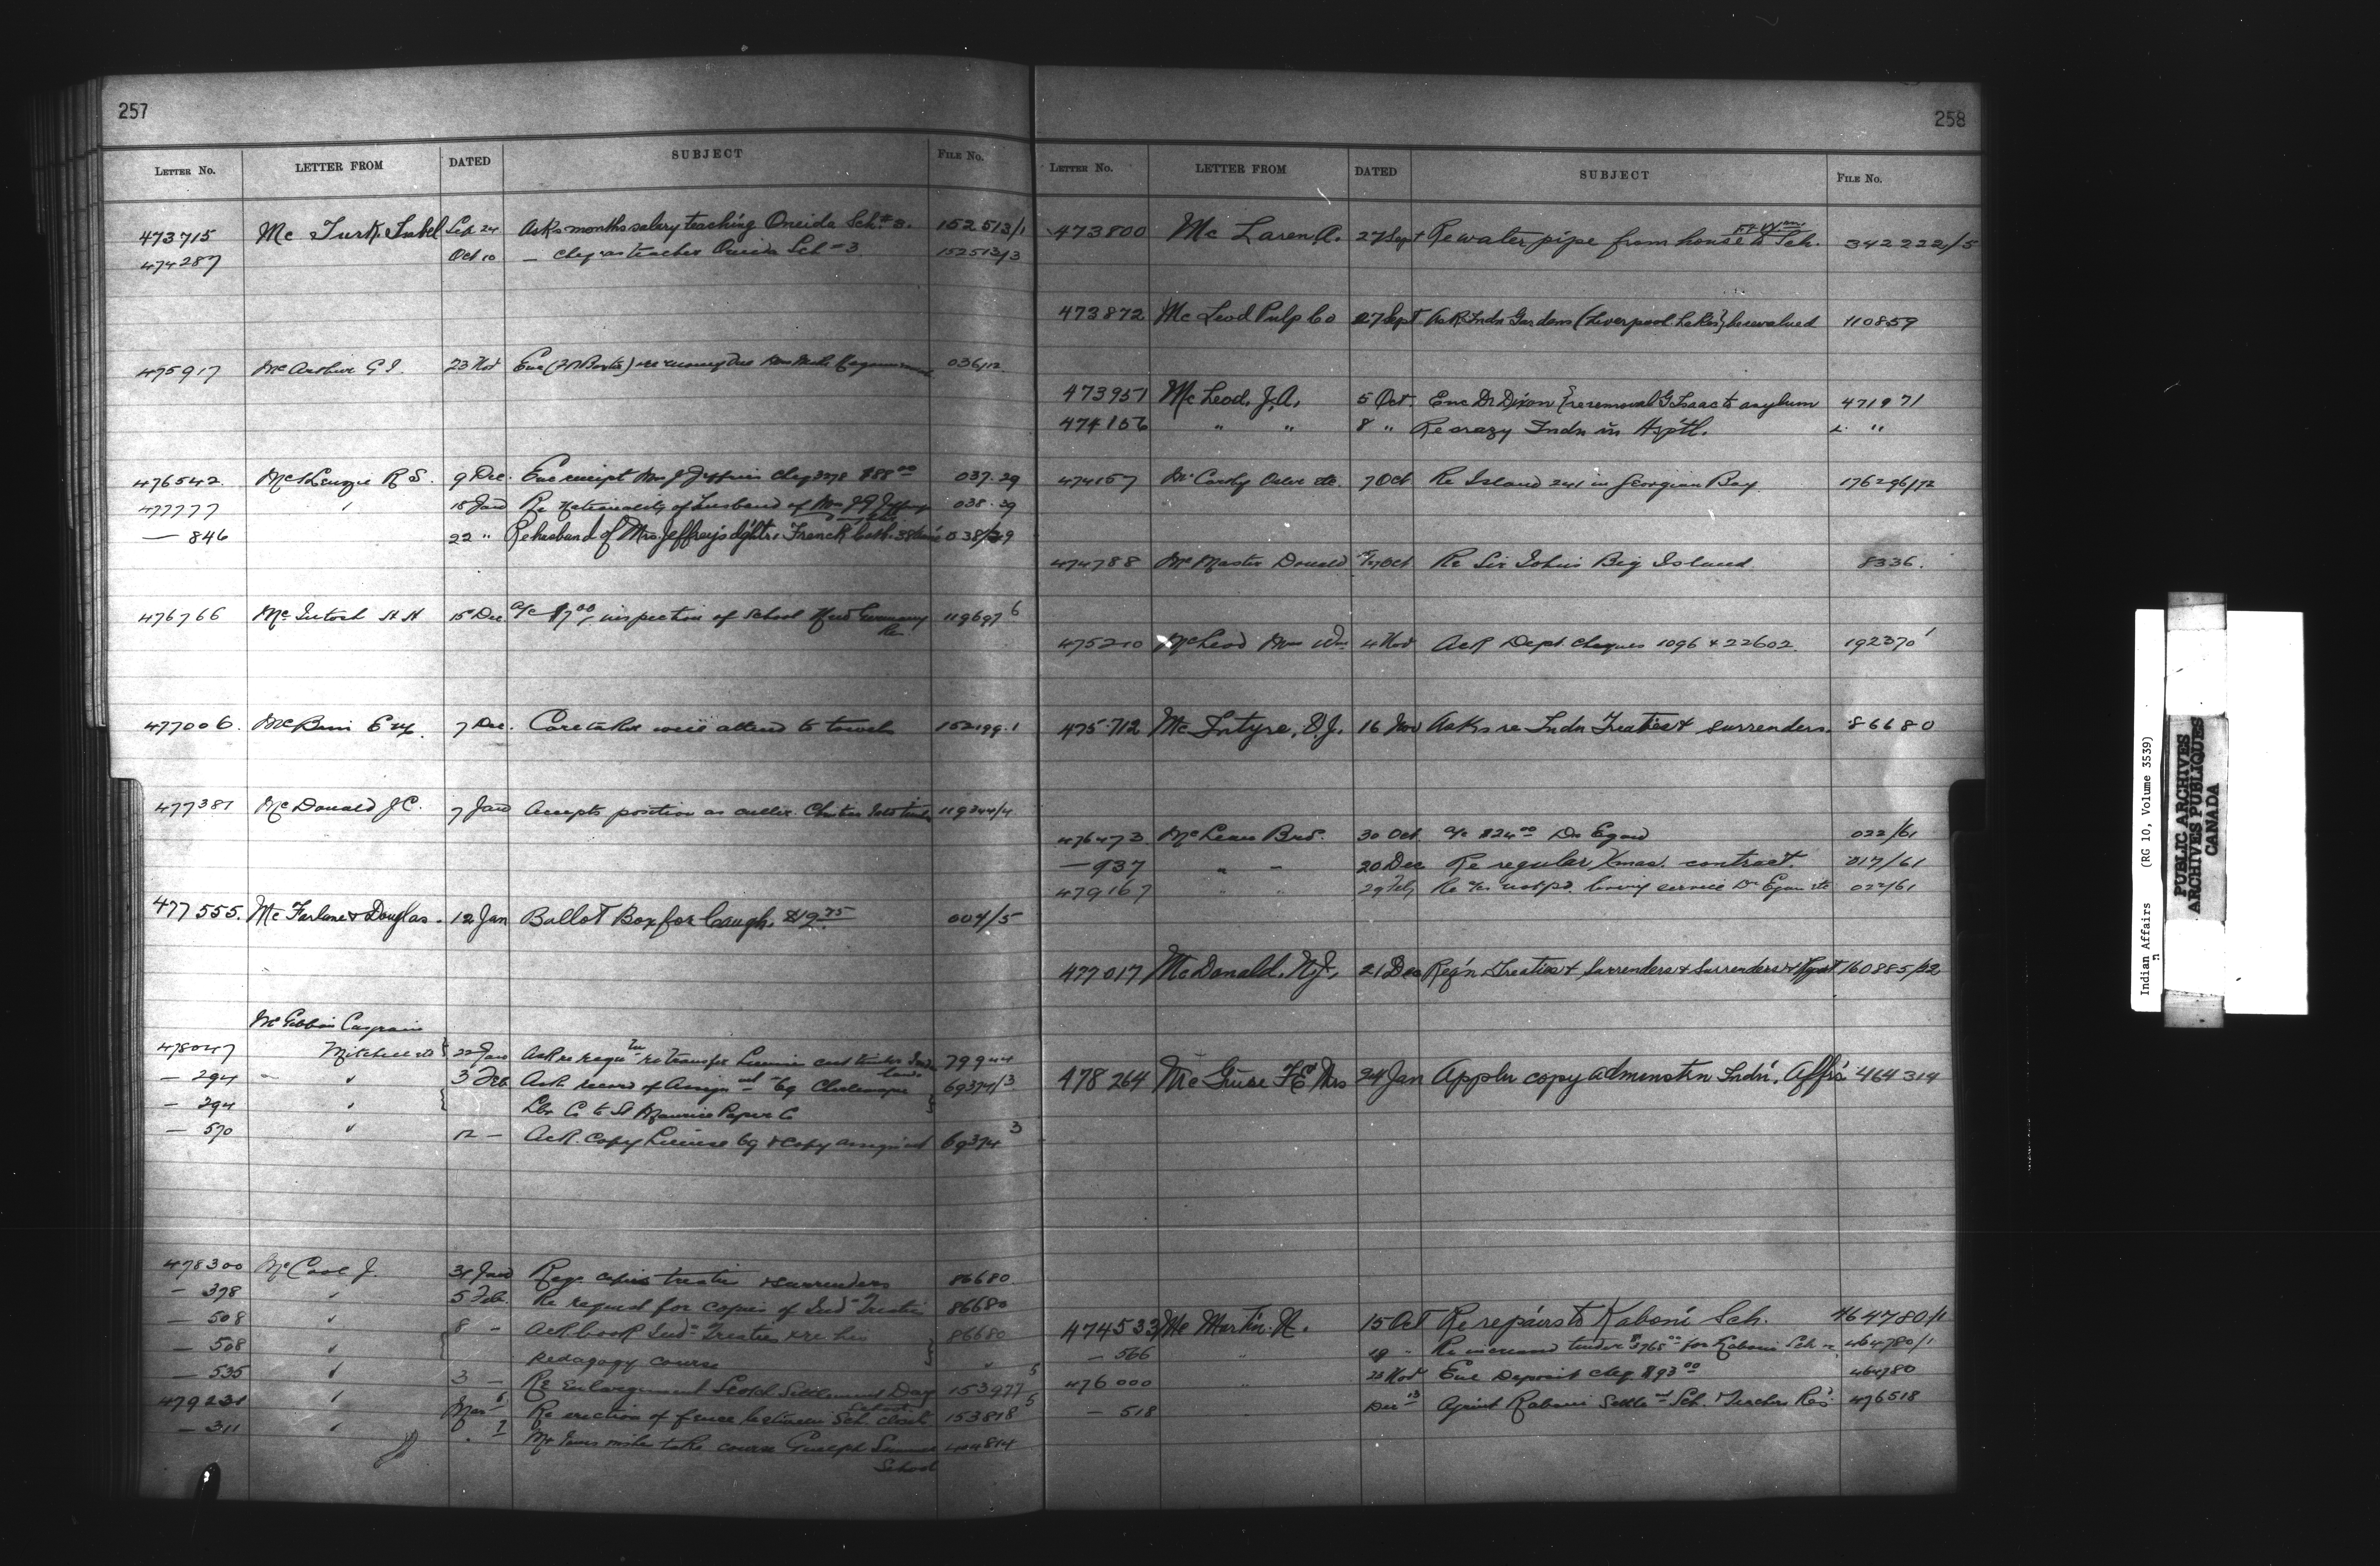 257
LETTER No. LETTER FROM DATED SUBJECT FILE No.
473715 Mc Turk Isabel Sep 24 Asks months salary teaching Oneida Sch. # 3. 152513/1
474287 Oct 10 — cheq as teacher Oneida Sch # 3 152513/3
475917 McArthur G I. 23 Nov Enc 036/12
476542 McKenzie R S. 9 Dec. Enc receipt Mrs J Jeffries cheq 3278 $88 00 037-29
477777 18 Jan Re Nationality of husband of Mrs J G Jeffrey 038-29
— 846 22 " Re husband of Mrs. Jeffreys dghtr. French Cath. 038/29
476766 McIntosh H H 15 Dec a/c $7 00 inspection of School New Germany Re 119697 6
477006. McBain 7 Dec. Caretaker will attend to towels 152199-1
477381 McDonald J C. 7 Jan Accepts position as culler 119344/4
477555. McFarlane & Douglas. 12 Jan Ballot Box for Caugh. $19.75 004/5
McGibbon Casgrain
478047 Mitchell & 22 Jan Ask re regu re transfer License cut timber Ind lands 79944
— 294 " 3 Feb. Ask record of Assign mt 69374/3
— 294 " Lbr Co to St Maurice Paper Co
— 570 " 12 — Ack. copy License 69 & copy assignmt 69374 3
478300 McCool J. 31 Jan Reqs. copies treaties & surrenders 86680.
— 378 " 5 Feb. Re request for copies of Indn Treaties 86680
— 508 " 8 — Ack book Indn Treaties & re his 86680
— 508 " pedagogy course "
— 535 " 3 — Re Enlargement Scotch Settlement Day 153977 5
479231 " Mar 6 Re erection of fence between Sch. closets 153818 5
— 311 " " 7 take course Guelph Summer School
258
LETTER No. LETTER FROM DATED SUBJECT FILE No.
473800 Mc Laren A. 27 Sept Re water pipe from house to Ft Wm Sch. 342222/5
473872 McLeod Pulp Co 27 Sept. Ask Indn Gardens (Liverpool Lakes) be revalued 110859
473951 McLeod, J. A. 5 Oct. Enc Dr Dixon re removal G Isaac to asylum 471971
474156 " " 8 " Re crazy Indn in Hsptl. "
474157 McCarthy Osler etc. 7 Oct Re Island 241 in Georgian Bay 176296/72
474788 McMaster Donald 17 Oct Re Sir John's Big Island 8336.
475210 McLeod Mrs Wm 4 Nov Ack Dept. cheques 1096 & 22602. 192370 1
475712 McIntyre, D. J. 16 Nov Asks re Indn Treaties & surrenders. 86680
476473 McLean Bros. 30 Oct a/c $24 00 Dr Egan 022/61
— 937 " " 20 Dec Re regular Xmas. contract. 017/61
479167 " " 29 Feb Re a/c not pd. livery service Dr Egan etc 022/61
477017 McDonald, N. J. 21 Dec Reg'n. Treaties & Surrenders & Surrenders & 160885/22
478264 McGuire F E Mrs 24 Jan Appln copy admenstrn Indn. Affrs 464314
474533 McMartin. N. 15 Oct Re repairs to Kaboni Sch. 464780/1
— 566 " 19 " Re increased tender $3765 00 for Kaboni Sch 464780/1
476000 " 23 Nov Enc Deposit cheq $93 00 464780
— 518 " Dec 13 Kaboni Settle mt Sch. Teachers Res. 476518
Indian Affairs (RG 10, Volume 3539)
PUBLIC ARCHIVES
ARCHIVES PUBLIQUES
CANADA